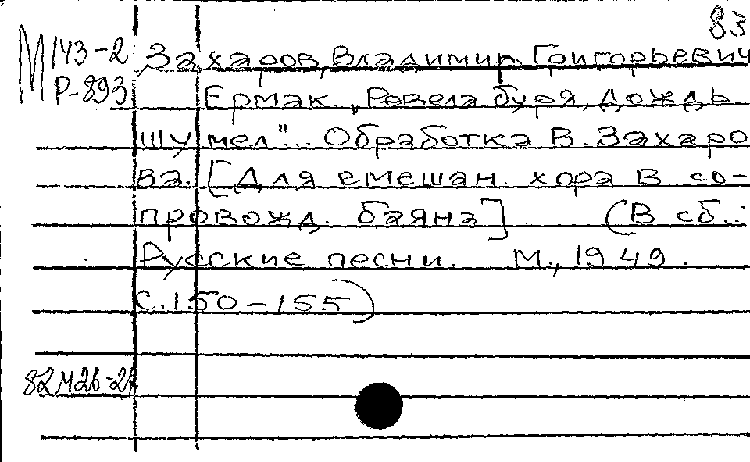 83
М 143-2 Захаров, Владимир Григорьевич
Р-893 Ермак „Ревела буря, дождь
шумел". Обработка В. Захаро
ва. [Для смешан. хора в со-
провожд. баяна] (В сб.:
Русские песни. М., 1949.
С. 150-155)